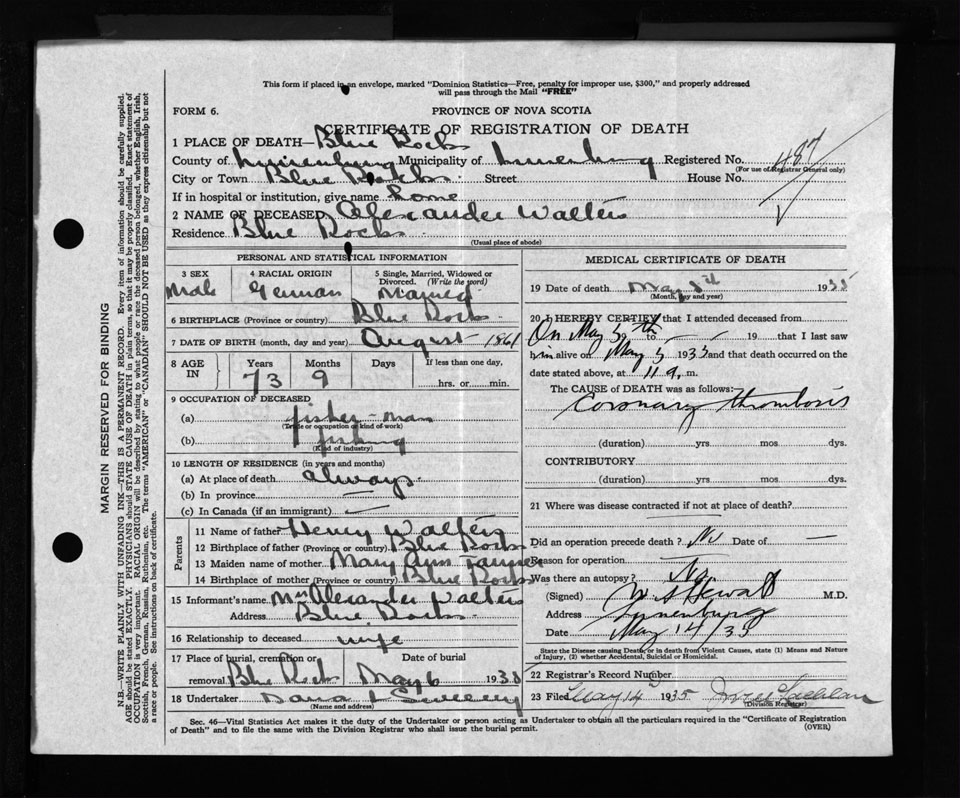 This form if placed in an envelope, marked "Dominion Statistics—Free, penalty for improper use, $300," and properly addressed
will pass through the Mail "FREE"
FORM 6. PROVINCE OF NOVA SCOTIA
CERTIFICATE OF REGISTRATION OF DEATH
1 PLACE OF DEATH— Blue Rocks
County of Lunenburg Municipality of Lunenburg Registered No. 487
(For use of Registrar General only)
City or Town Blue Rocks Street House No.
If in hospital or institution, give name home
2 NAME OF DECEASED Alexander Walters
Residence Blue Rocks
(Usual place of abode)
PERSONAL AND STATISTICAL INFORMATION
3 SEX 4 RACIAL ORIGIN 5 Single, Married, Widowed or
Divorced. (Write the word)
Male German Married
6 BIRTHPLACE (Province or country) Blue Rocks
7 DATE OF BIRTH (month, day and year) August 1861
8 AGE IN Years Months Days If less than one day,
73 9 hrs. or min.
9 OCCUPATION OF DECEASED
(a) fisher-man
(Trade or occupation or kind of work)
(b) fishing
(Kind of industry)
10 LENGTH OF RESIDENCE (in years and months)
(a) At place of death always
(b) In province —
(c) In Canada (if an immigrant) —
Parents
11 Name of father Henry Walters
12 Birthplace of father (Province or country) Blue Rocks
13 Maiden name of mother Mary Ann
14 Birthplace of mother (Province or country) Blue Rocks
15 Informant's name Mrs Alexander Walters
Address Blue Rocks
16 Relationship to deceased wife
17 Place of burial, cremation or Date of burial
removal Blue Rocks May 6 1935
18 Undertaker
(Name and address)
MEDICAL CERTIFICATE OF DEATH
19 Date of death May 1935
(Month, day and year)
20 I HEREBY CERTIFY that I attended deceased from
On May 5th 19 to — 19 that I last saw
him alive on May 5 193 and that death occurred on
date stated above, at 11 a. m.
The CAUSE of DEATH was as follows:
Coronary Thrombosis
(duration) yrs. mos. dys.
CONTRIBUTORY
(duration) yrs. mos. dys.
21 Where was disease contracted if not at place of death?
Did an operation precede death? No Date of —
Reason for operation —
Was there an autopsy? No
(Signed) M.D.
Address Lunenburg
Date May 14/35
State the Disease causing Death, or in death from Violent Causes, state (1) Means and Nature
of Injury, (2) whether Accidental, Suicidal or Homicidal.
22 Registrar's Record Number
23 Filed May 14 1935
(Division Registrar)
Sec. 46—Vital Statistics Act makes it the duty of the Undertaker or person acting as Undertaker to obtain all the particulars required in the "Certificate of Registration
of Death" and to file the same with the Division Registrar who shall issue the burial permit. (OVER)
MARGIN RESERVED FOR BINDING
N.B.—WRITE PLAINLY WITH UNFADING INK—THIS IS A PERMANENT RECORD. Every item of information should be carefully supplied.
AGE should be stated EXACTLY. PHYSICIANS should STATE CAUSE OF DEATH in plain terms, so that it may be properly classified. Exact statement of
OCCUPATION is very important. RACIAL ORIGIN will be described by stating to what people or race the deceased person belonged, whether English, Irish,
Scottish, French, German, Russian, Ruthenian, etc. The terms "AMERICAN" or "CANADIAN" SHOULD NOT BE USED as they express citizenship but not
a race or people. See instructions on back of certificate.